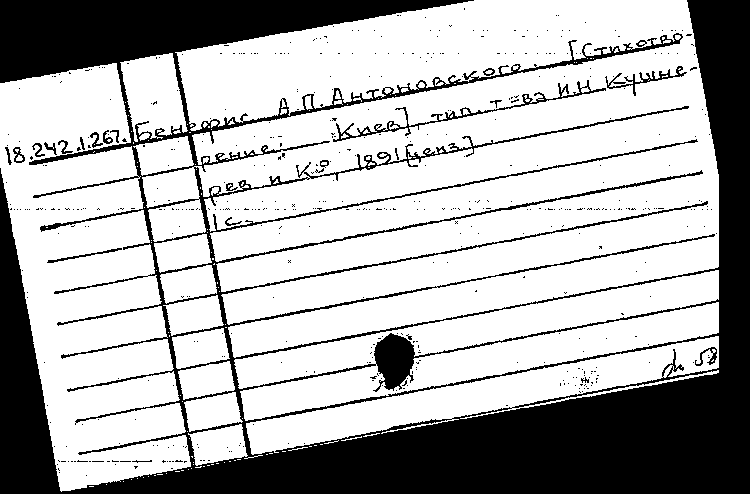 18.242.1.267. Бенефис А.П. Антоновского. [Стихотво-
рение. Киев], тип. т-ва И.Н Кушне-
рев и К°, 1891 [ценз.]
1 с.
58